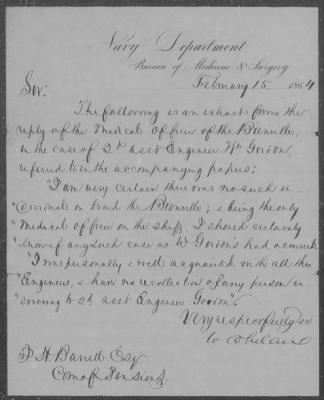 Navy Department
Bureau of Medicine & Surgery
February 15. 1864
Sir:
The following is an extract from the
reply of the Medical officer of the Bienville,
in the case of 2d asst Engineer Wm Gordon,
referred to in the accompanying papers:
"I am very certain there was no such in-
"dividual on board the Bienville; & being the only
"Medical officer on the ship, I should certainly
"know if any such case as W Gordon's had occurred.
"I am personally & well acquainted with all the
"Engineers, & have no recollection of any person an-
"swering to 2d asst Engineer Gordon".
Very respectfully
W Whelan
J H Barrett Esq
Com of Pensions.